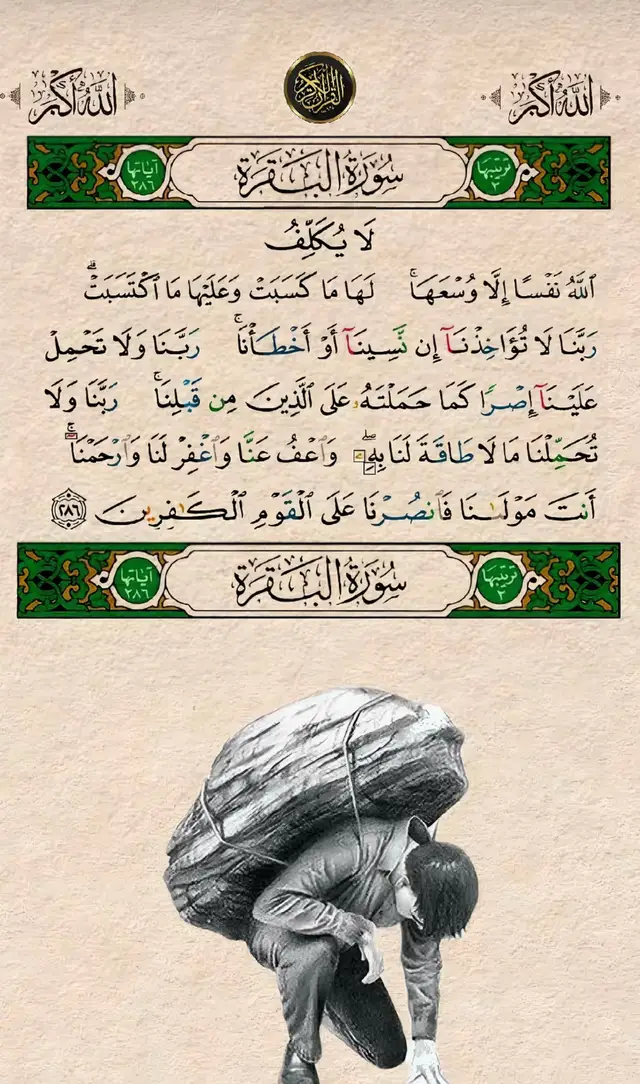 الله أكبر
القرآن الكريم
الله أكبر
ترتيبها ٢
سُورَةُ البَقَرَة
آياتها ٢٨٦
لَا يُكَلِّفُ
ٱللَّهُ نَفْسًا إِلَّا وُسْعَهَاۚ لَهَا مَا كَسَبَتْ وَعَلَيْهَا مَا ٱكْتَسَبَتْۗ
رَبَّنَا لَا تُؤَاخِذْنَآ إِن نَّسِينَآ أَوْ أَخْطَأْنَاۚ رَبَّنَا وَلَا تَحْمِلْ
عَلَيْنَآ إِصْرًا كَمَا حَمَلْتَهُۥ عَلَى ٱلَّذِينَ مِن قَبْلِنَاۚ رَبَّنَا وَلَا
تُحَمِّلْنَا مَا لَا طَاقَةَ لَنَا بِهِۦۖ وَٱعْفُ عَنَّا وَٱغْفِرْ لَنَا وَٱرْحَمْنَآۚ
أَنتَ مَوْلَىٰنَا فَٱنصُرْنَا عَلَى ٱلْقَوْمِ ٱلْكَٰفِرِينَ ٢٨٦
ترتيبها ٢
سُورَةُ البَقَرَة
آياتها ٢٨٦